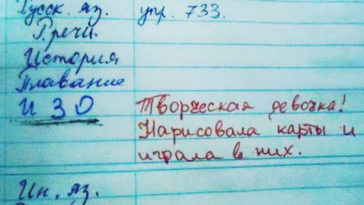 Русск. яз. упр. 733.
Р. речи.
История
Плавание
ИЗО Творческая девочка!
Нарисовала карты и
играла в них.
Ин. яз.